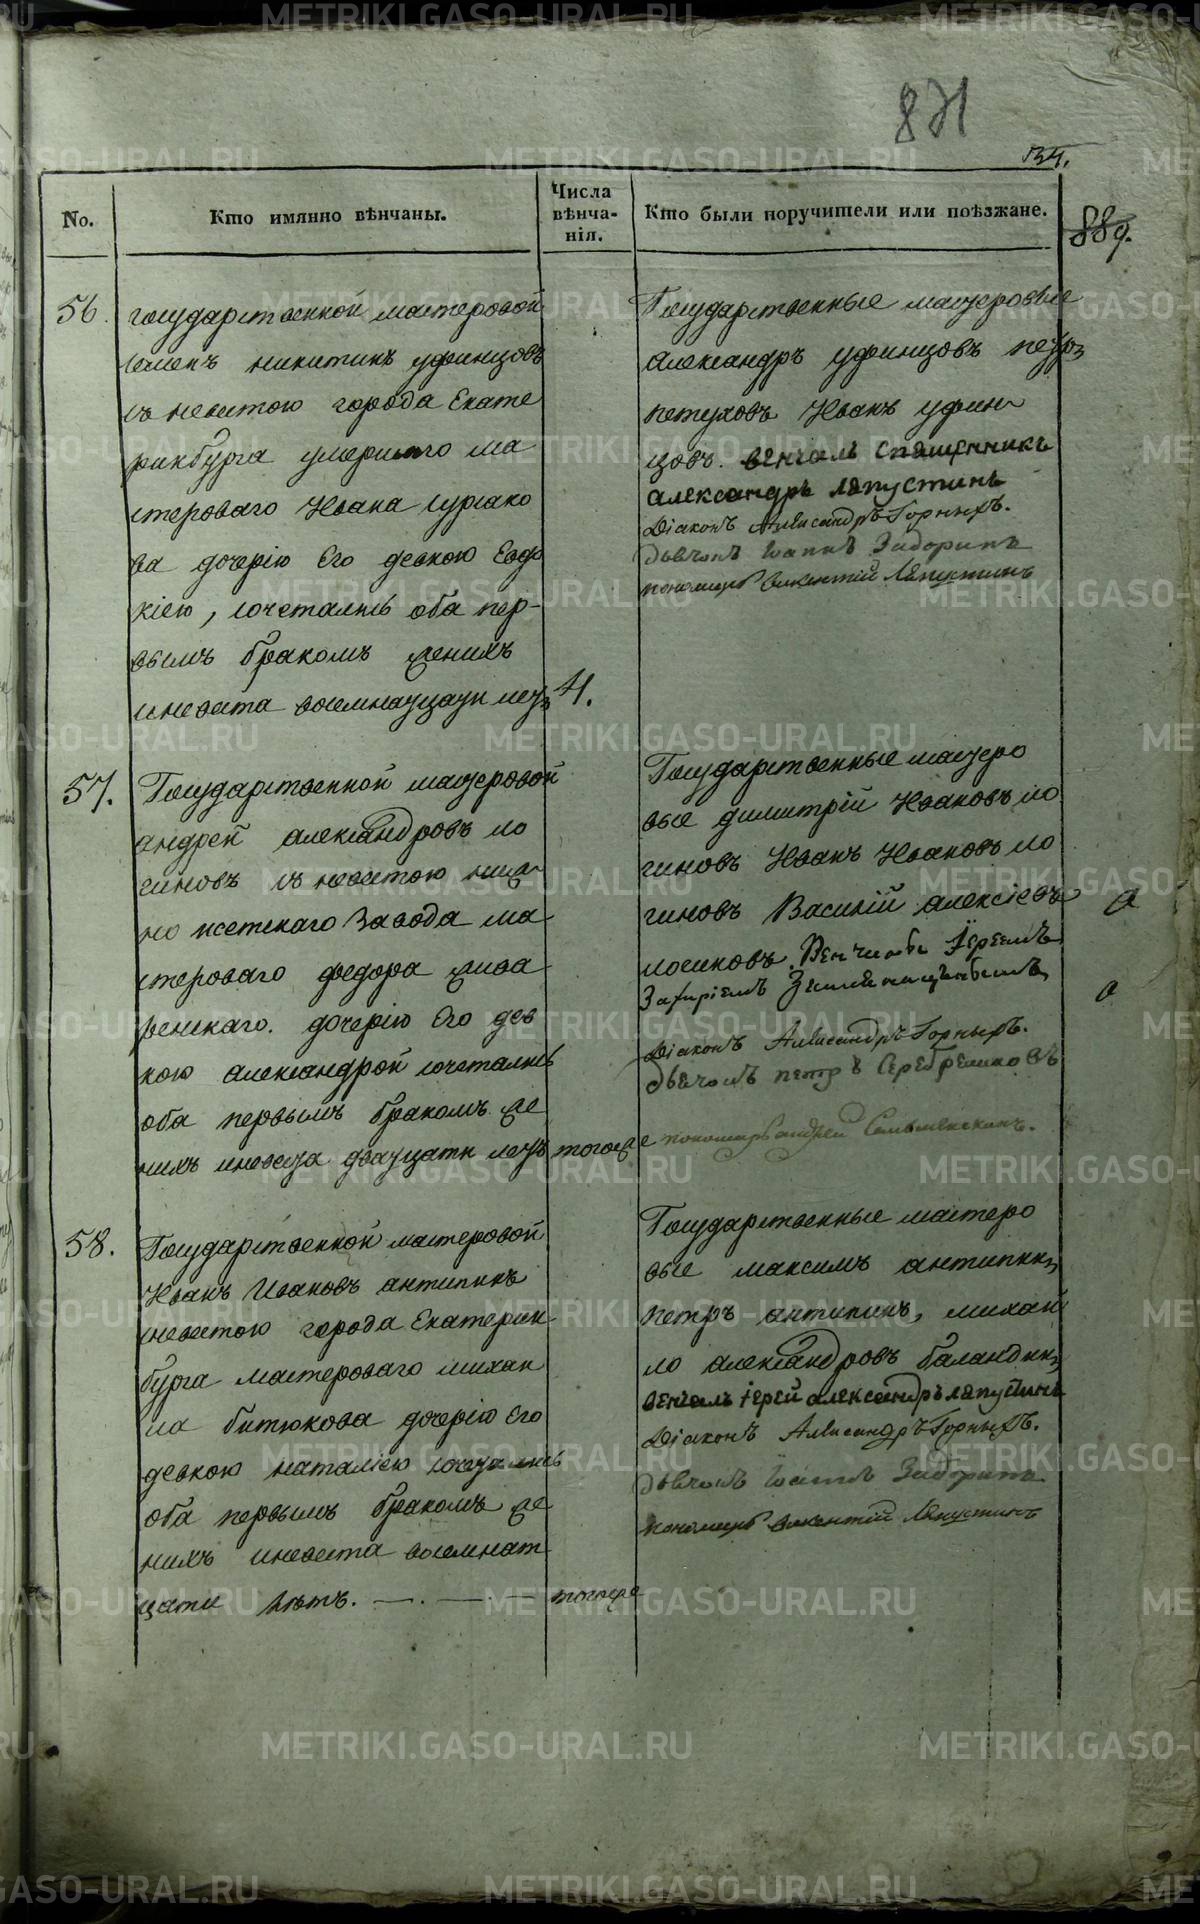 871
134.
889.
No.
Кто имянно вѣнчаны.
Числа
вѣнча-
нія.
Кто были поручители или поѣзжане.
56.
государственной мастеровой
Семенъ никитинъ уфинцовъ
съ невестою города Екате
ринбурга умершаго ма
стероваго Ивана
ва дочерію Его девкою Евдо
кіею, сочетались оба пер-
вымъ бракомъ женихъ
иневеста восемнатцати летъ
4.
Государственные мастеровые
александръ уфинцовъ петръ
петуховъ Иванъ уфин
цовъ. венчалъ священникъ
александръ ляпустинъ
Діаконъ Александръ Горныхъ.
дьячокъ Іоаннъ Задоринъ
пономарь викентій Ляпустинъ
57.
Государственной мастеровой
андрей александровъ ло
гиновъ съ невестою ниж
но исетскаго завода ма
стероваго федора
дочерію Его дев
кою александрой сочетались
оба первымъ бракомъ же
нихъ иневеста двадцати летъ
тогоже
Государственные мастеро
вые димитрій Ивановъ ло
гиновъ Иванъ Ивановъ ло
гиновъ Василій алексіевъ
лосиковъ. Венчаны Іереемъ
Захаріемъ
Діаконъ Александръ Горныхъ.
дьячокъ петръ Серебрениковъ
пономарь андрей
58.
Государственной мастеровой
Иванъ Ивановъ антипинъ
сневестою города Екатерин
бурга мастероваго михаи
ла битюкова дочерію Его
девкою наталіею сочетались
оба первымъ бракомъ же
нихъ иневеста восемнат
цати летъ. —. —. —
тогоже
Государственные мастеро
вые максимъ антипинъ
петръ антипинъ, михай
ло александровъ баландинъ
венчалъ іерей александръ ляпустинъ
Діаконъ Александръ Горныхъ.
дьячокъ Іоаннъ Задоринъ
пономарь викентій Ляпустинъ
METRIKI.GASO-URAL.RU